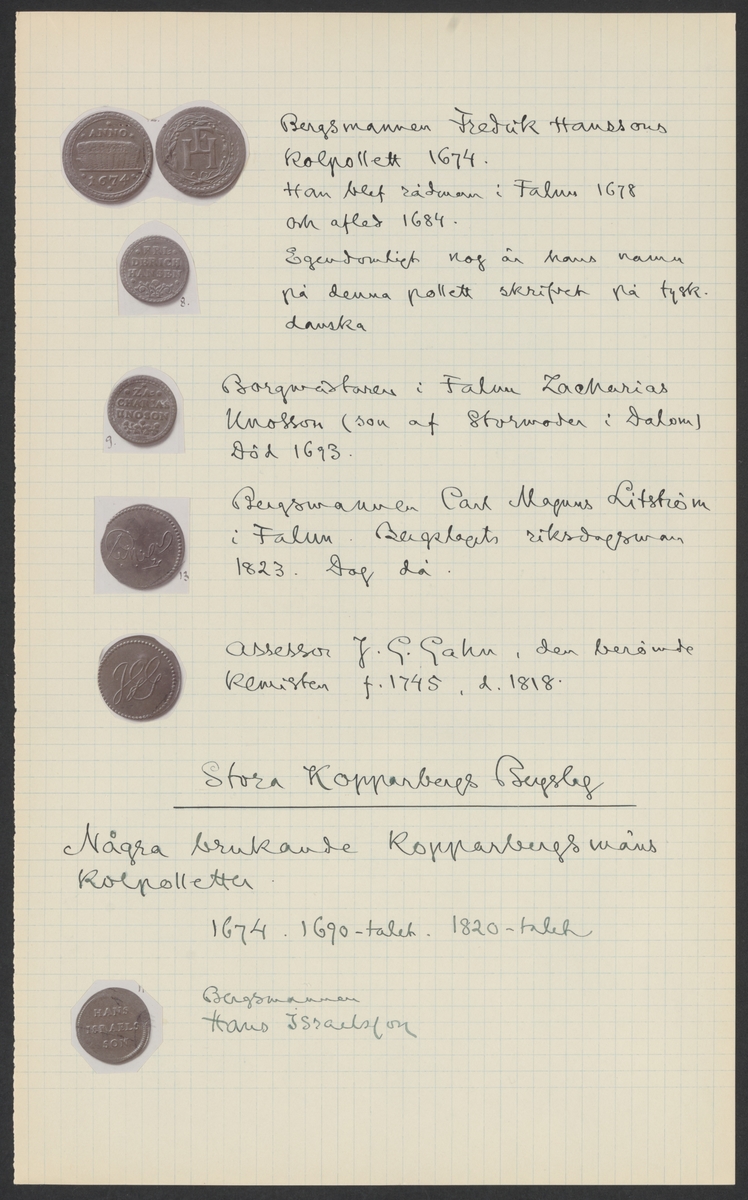 ANNO
1674
FH
Bergsmannen Fredrik Hanssons
Kolpollett 1674.
Han blef rådman i Falun 1678
och afled 1684.
FRI
DERICH
HANSEN
8.
Egendomligt nog är hans namn
på denna pollett skrifvet på tysk-
danska
ZA
CHARIAS
UNOSON
9.
Borgmästaren i Falun Zacharias
Unosson (son af Stormoder i Dalom)
Död 1693.
13
Bergsmannen Carl Magnus Litström
i Falun. Bergslagets riksdagsman
1823. Dog då.
JGG
Assessor J. G. Gahn, den berömde
Kemisten f. 1745, d. 1818.
Stora Kopparbergs Bergslag
Några brukande Kopparbergsmäns
Kolpolletter.
1674. 1690-talet. 1820-talet
11
HANS
ISRAELS
SON
Bergsmannen
Hans Israelsson